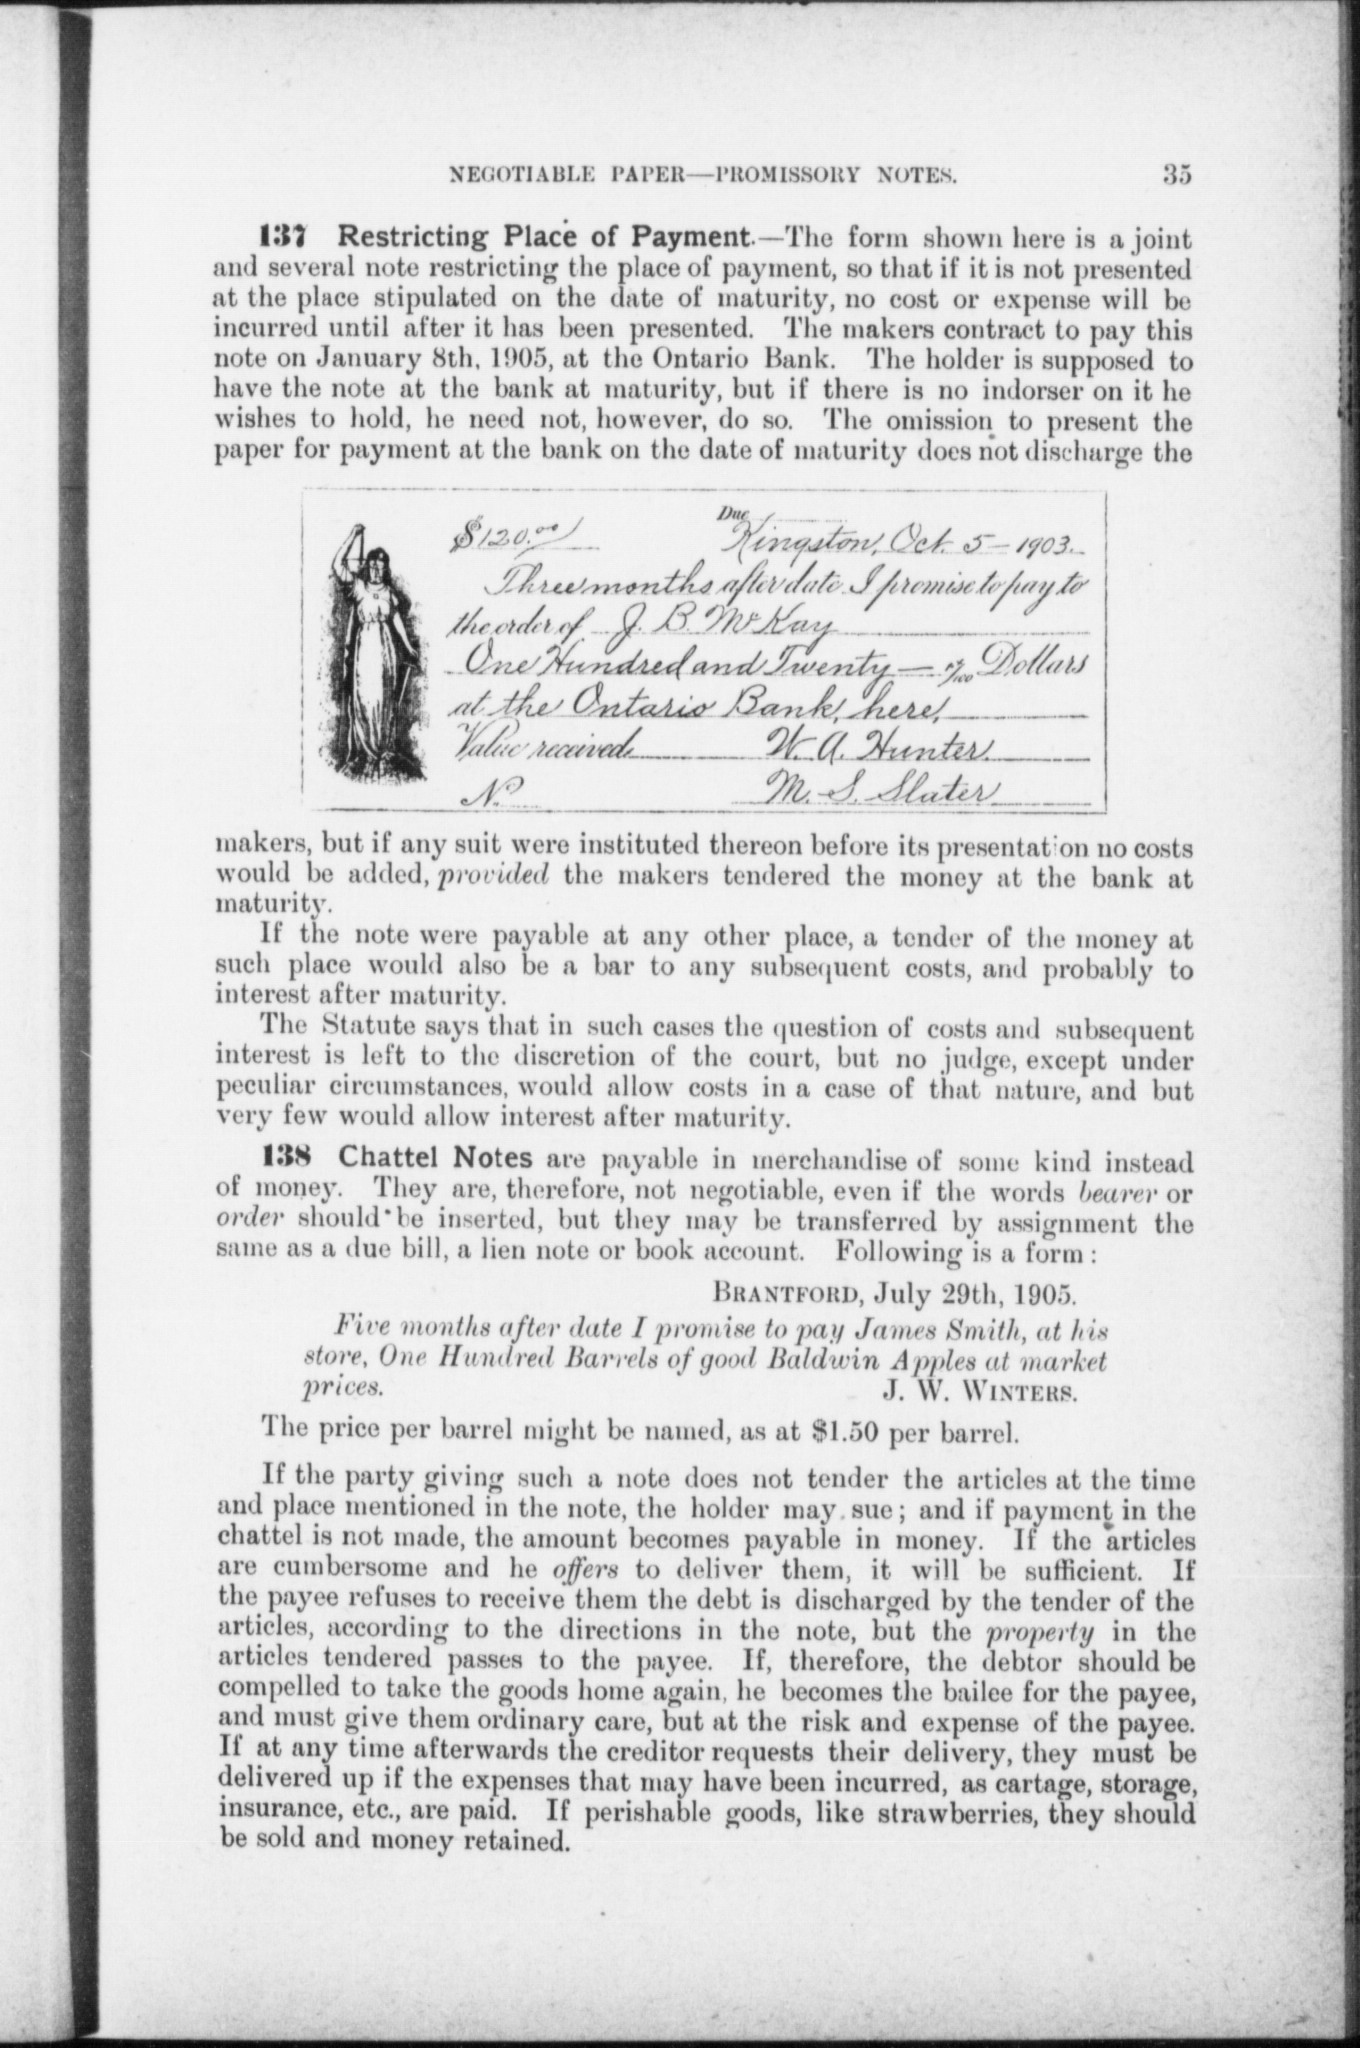 NEGOTIABLE PAPER—PROMISSORY NOTES. 35
137 Restricting Place of Payment.—The form shown here is a joint
and several note restricting the place of payment, so that if it is not presented
at the place stipulated on the date of maturity, no cost or expense will be
incurred until after it has been presented. The makers contract to pay this
note on January 8th, 1905, at the Ontario Bank. The holder is supposed to
have the note at the bank at maturity, but if there is no indorser on it he
wishes to hold, he need not, however, do so. The omission to present the
paper for payment at the bank on the date of maturity does not discharge the
Due
$120.00/ Kingston, Oct. 5—1903.
Three months after date I promise to pay to
the order of J. B. McKay
One Hundred and Twenty — 0/100 Dollars
at the Ontario Bank, here,
Value received W. A. Hunter.
No. M. S. Slater
makers, but if any suit were instituted thereon before its presentation no costs
would be added, provided the makers tendered the money at the bank at
maturity.
If the note were payable at any other place, a tender of the money at
such place would also be a bar to any subsequent costs, and probably to
interest after maturity.
The Statute says that in such cases the question of costs and subsequent
interest is left to the discretion of the court, but no judge, except under
peculiar circumstances, would allow costs in a case of that nature, and but
very few would allow interest after maturity.
138 Chattel Notes are payable in merchandise of some kind instead
of money. They are, therefore, not negotiable, even if the words bearer or
order should be inserted, but they may be transferred by assignment the
same as a due bill, a lien note or book account. Following is a form:
BRANTFORD, July 29th, 1905.
Five months after date I promise to pay James Smith, at his
store, One Hundred Barrels of good Baldwin Apples at market
prices. J. W. WINTERS.
The price per barrel might be named, as at $1.50 per barrel.
If the party giving such a note does not tender the articles at the time
and place mentioned in the note, the holder may sue; and if payment in the
chattel is not made, the amount becomes payable in money. If the articles
are cumbersome and he offers to deliver them, it will be sufficient. If
the payee refuses to receive them the debt is discharged by the tender of the
articles, according to the directions in the note, but the property in the
articles tendered passes to the payee. If, therefore, the debtor should be
compelled to take the goods home again, he becomes the bailee for the payee,
and must give them ordinary care, but at the risk and expense of the payee.
If at any time afterwards the creditor requests their delivery, they must be
delivered up if the expenses that may have been incurred, as cartage, storage,
insurance, etc., are paid. If perishable goods, like strawberries, they should
be sold and money retained.